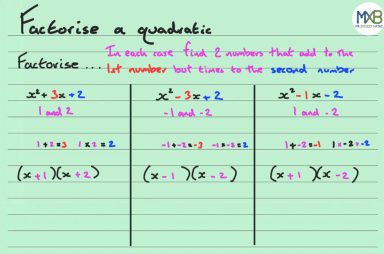 Factorise a quadratic
MXB
Factorise ... In each case find 2 numbers that add to the
1st number but times to the second number
x²+3x+2
1 and 2
1+2=3 1×2=2
(x+1)(x+2)
x²-3x+2
-1 and -2
-1+-2=-3 -1×-2=2
(x-1)(x-2)
x²-1x-2
1 and -2
1+-2=-1 1×-2=-2
(x+1)(x-2)